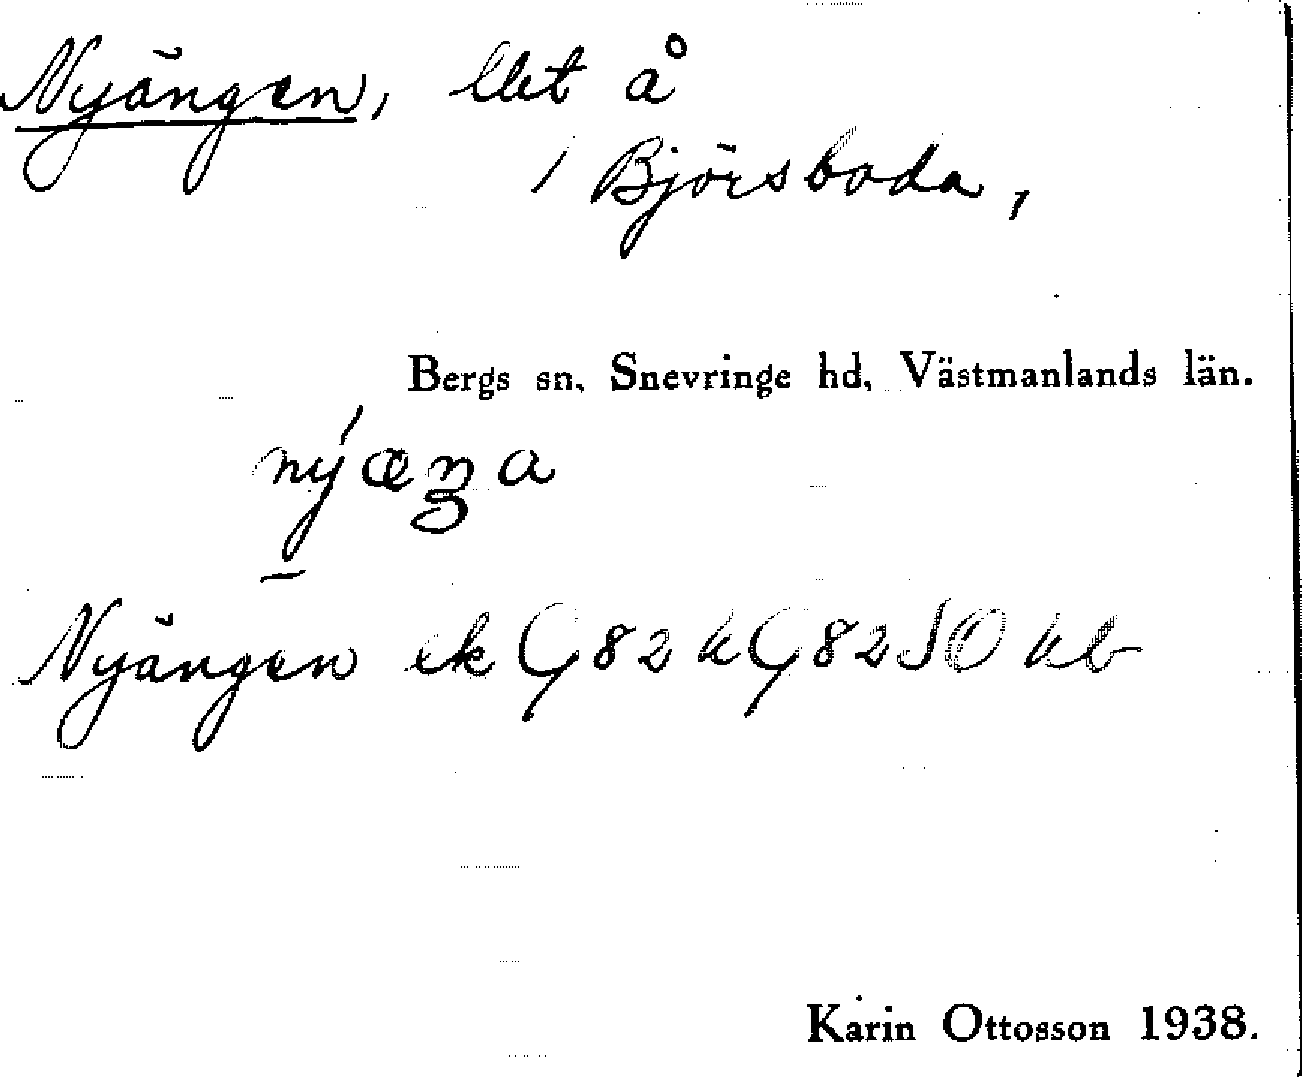 Nyängen, llet å
/ Björsboda,
Bergs sn, Snevringe hd, Västmanlands län.
nýæŋa
Nyängen ek G82 k G82 SO kb
Karin Ottosson 1938.